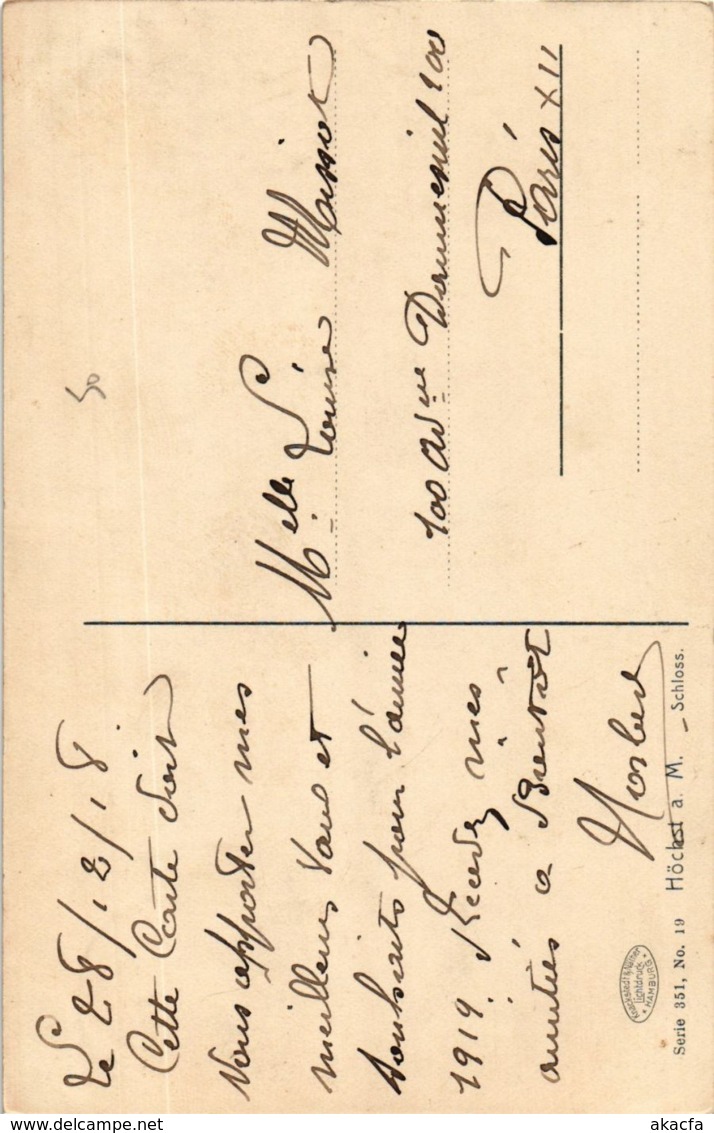 Le 28/12/18.
Cette Carte doit
Vous apporter mes
meilleurs Vœux et
souhaits pour l'année
1919. Recevez mes
amitiés a Bientôt
Melle Louise
100 Avnue Daumesnil 100
Paris XII
50
Knackstedt & Näther
Lichtdruck
HAMBURG
Serie 351, No. 19 Höchst a. M. – Schloss.
akacfa